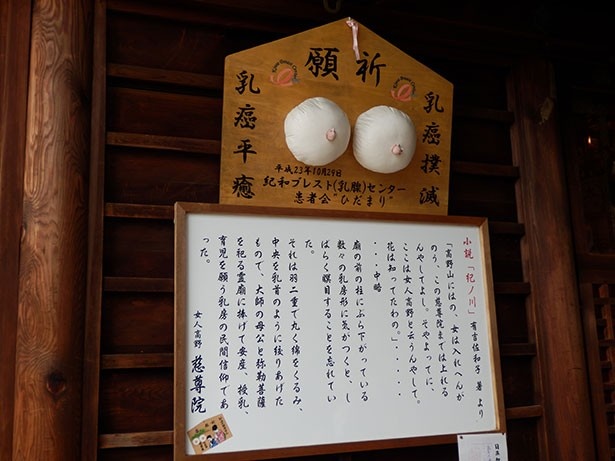 祈願
乳癌撲滅
乳癌平癒
平成23年10月29日
紀和ブレスト(乳腺)センター
患者会"ひだまり"
小説「紀ノ川」 有吉佐和子 著より
「高野山にはの、女は入れへんが
のう、この慈尊院までは上れる
んやしてよし。そやよってに、
ここは女人高野と云うんやして。
花は知ってたわの。」・・・・・
・・・中略
廟の前の柱にぶら下がっている
数々の乳房形に気がつくと、し
ばらく瞑目することを忘れてい
た。
それは羽二重で丸く綿をくるみ、
中央を乳首のように絞りあげた
もので、大師の母公と弥勒菩薩
を祀る霊廟に捧げて安産、授乳、
育児を願う乳房の民間信仰であ
った。
女人高野 慈尊院